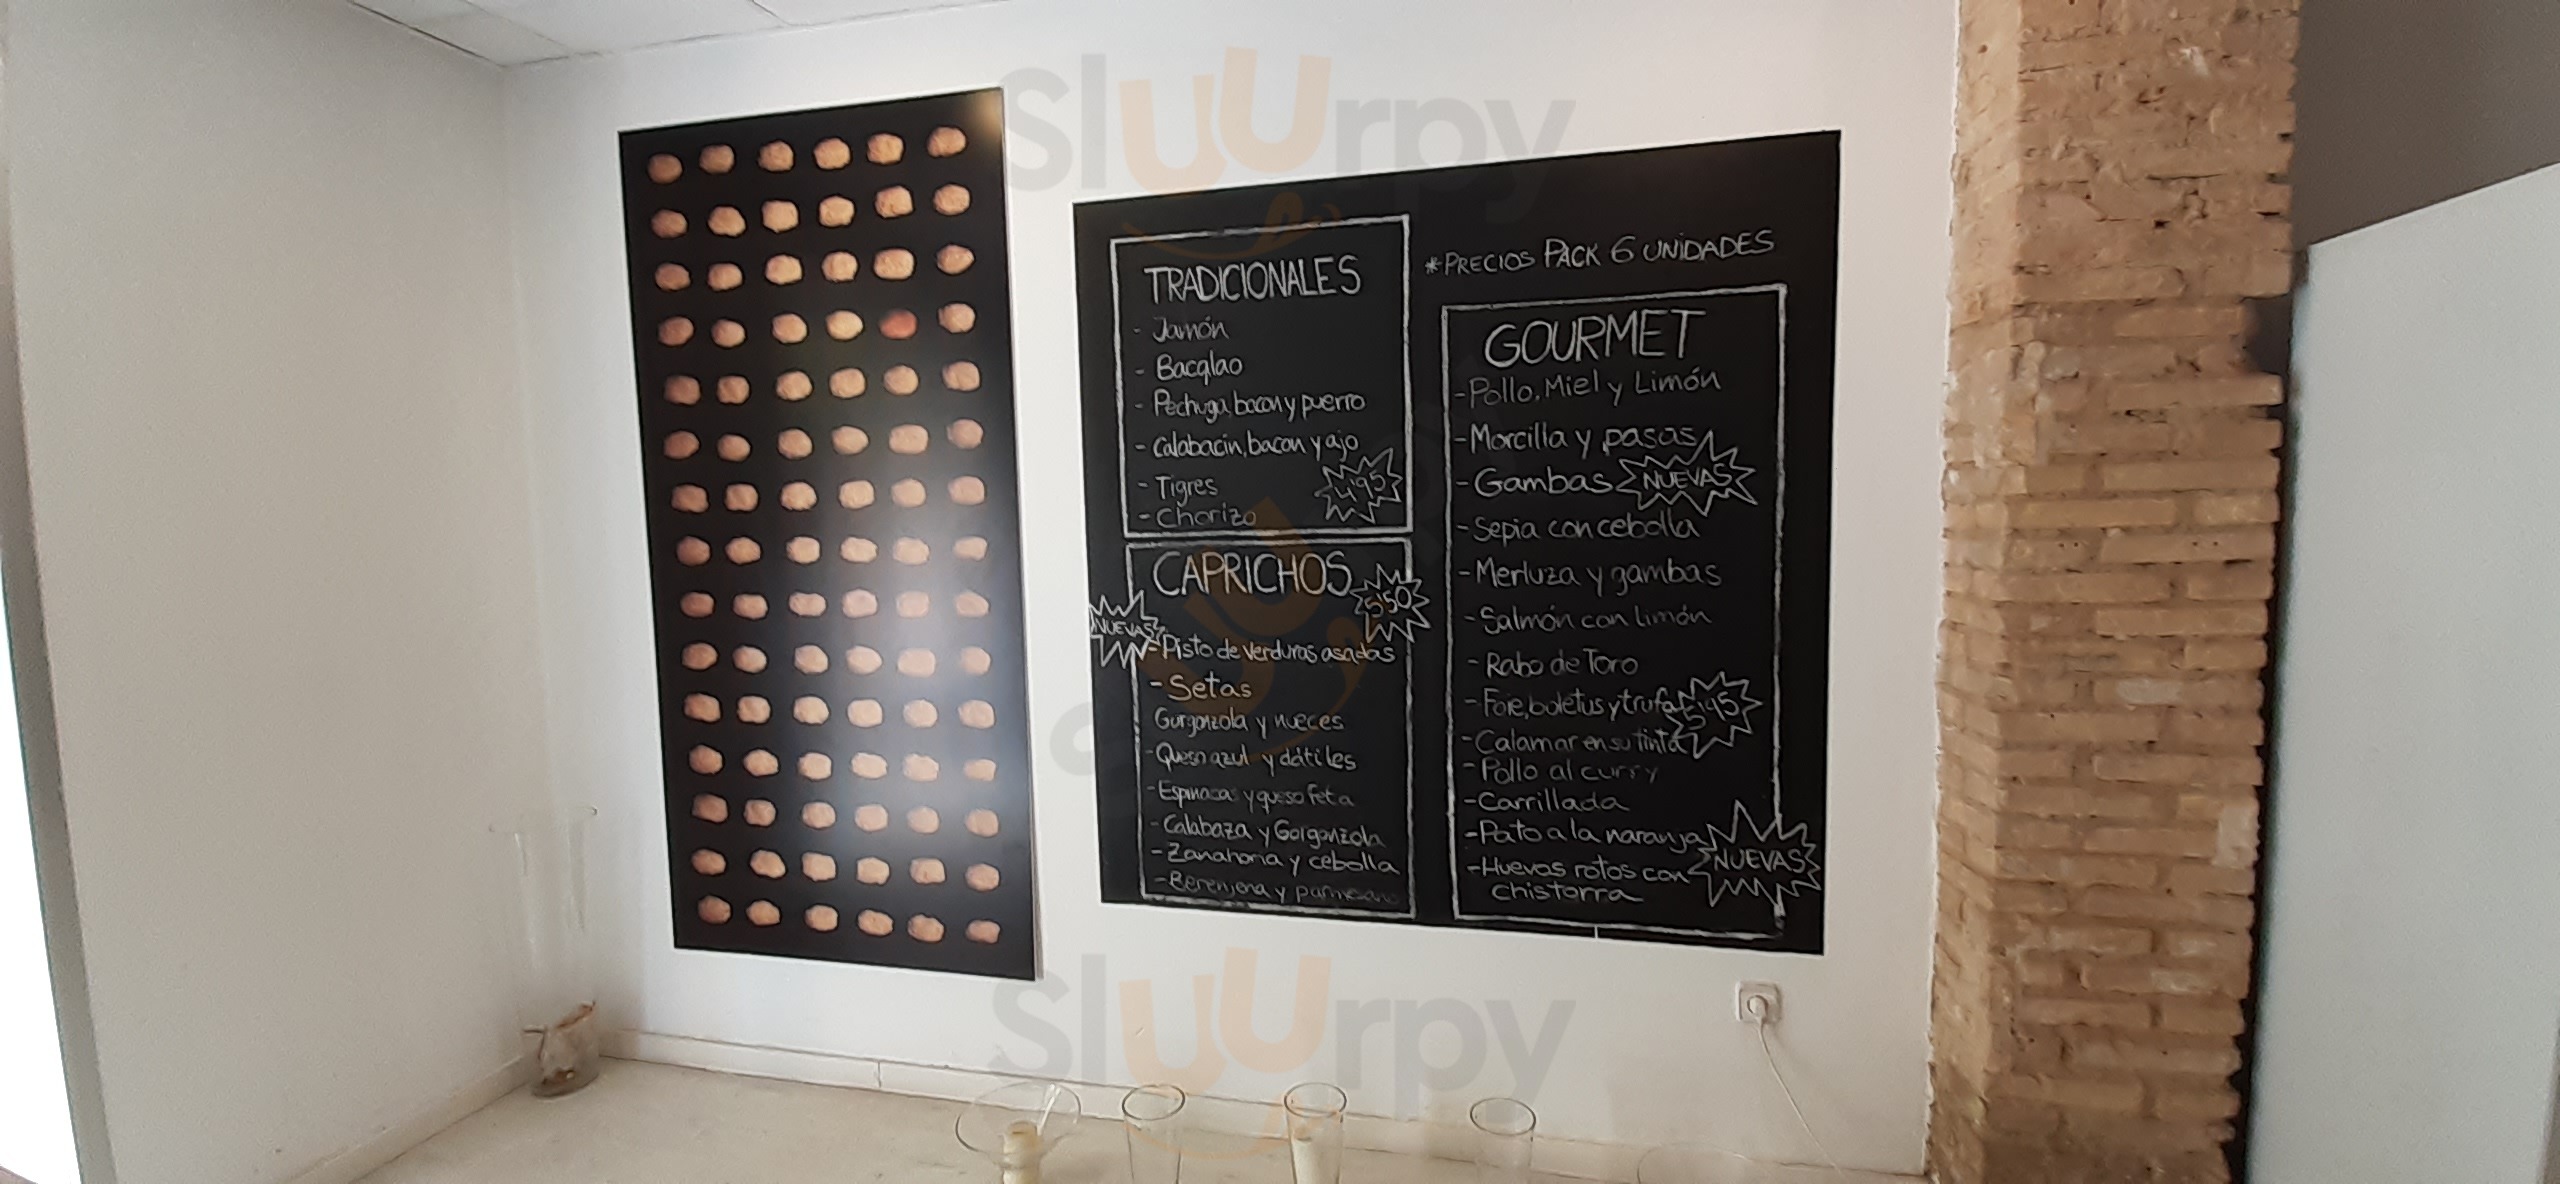 Sluurpy
TRADICIONALES
- Jamón
- Bacalao
- Pechuga, bacon y puerro
- Calabacin, bacon y ajo
- Tigres
4'95
- Chorizo
CAPRICHOS
5'50
NUEVAS
- Pisto de verduras asadas
- Setas
Gorgonzola y nueces
- Queso azul y dátiles
- Espinacas y queso feta
- Calabaza y Gorgonzola
- Zanahoria y cebolla
- Berenjena y parmesano
*PRECIOS PACK 6 UNIDADES
GOURMET
- Pollo, Miel y Limón
- Morcilla y pasas
- Gambas NUEVAS
- Sepia con cebolla
- Merluza y gambas
- Salmón con limón
- Rabo de Toro
- Foie, boletus y trufa
5'95
- Calamar en su tinta
- Pollo al curry
- Carrillada
- Pato a la naranja
- Huevos rotos con
chistorra
NUEVAS
Sluurpy